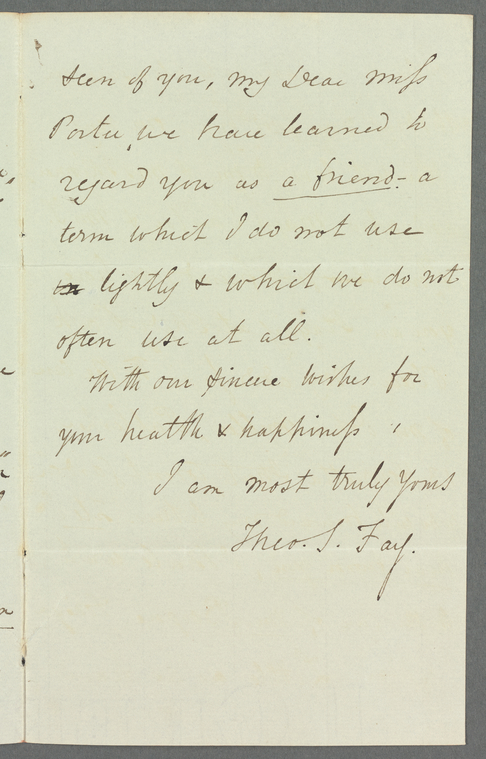 seen of you, my Dear Miss
Porter, we have learned to
regard you as a friend - a
term which I do not use
lightly & which we do not
often use at all.
With our sincere wishes for
your health & happiness,
I am most truly Yours
Theo. S. Fay.